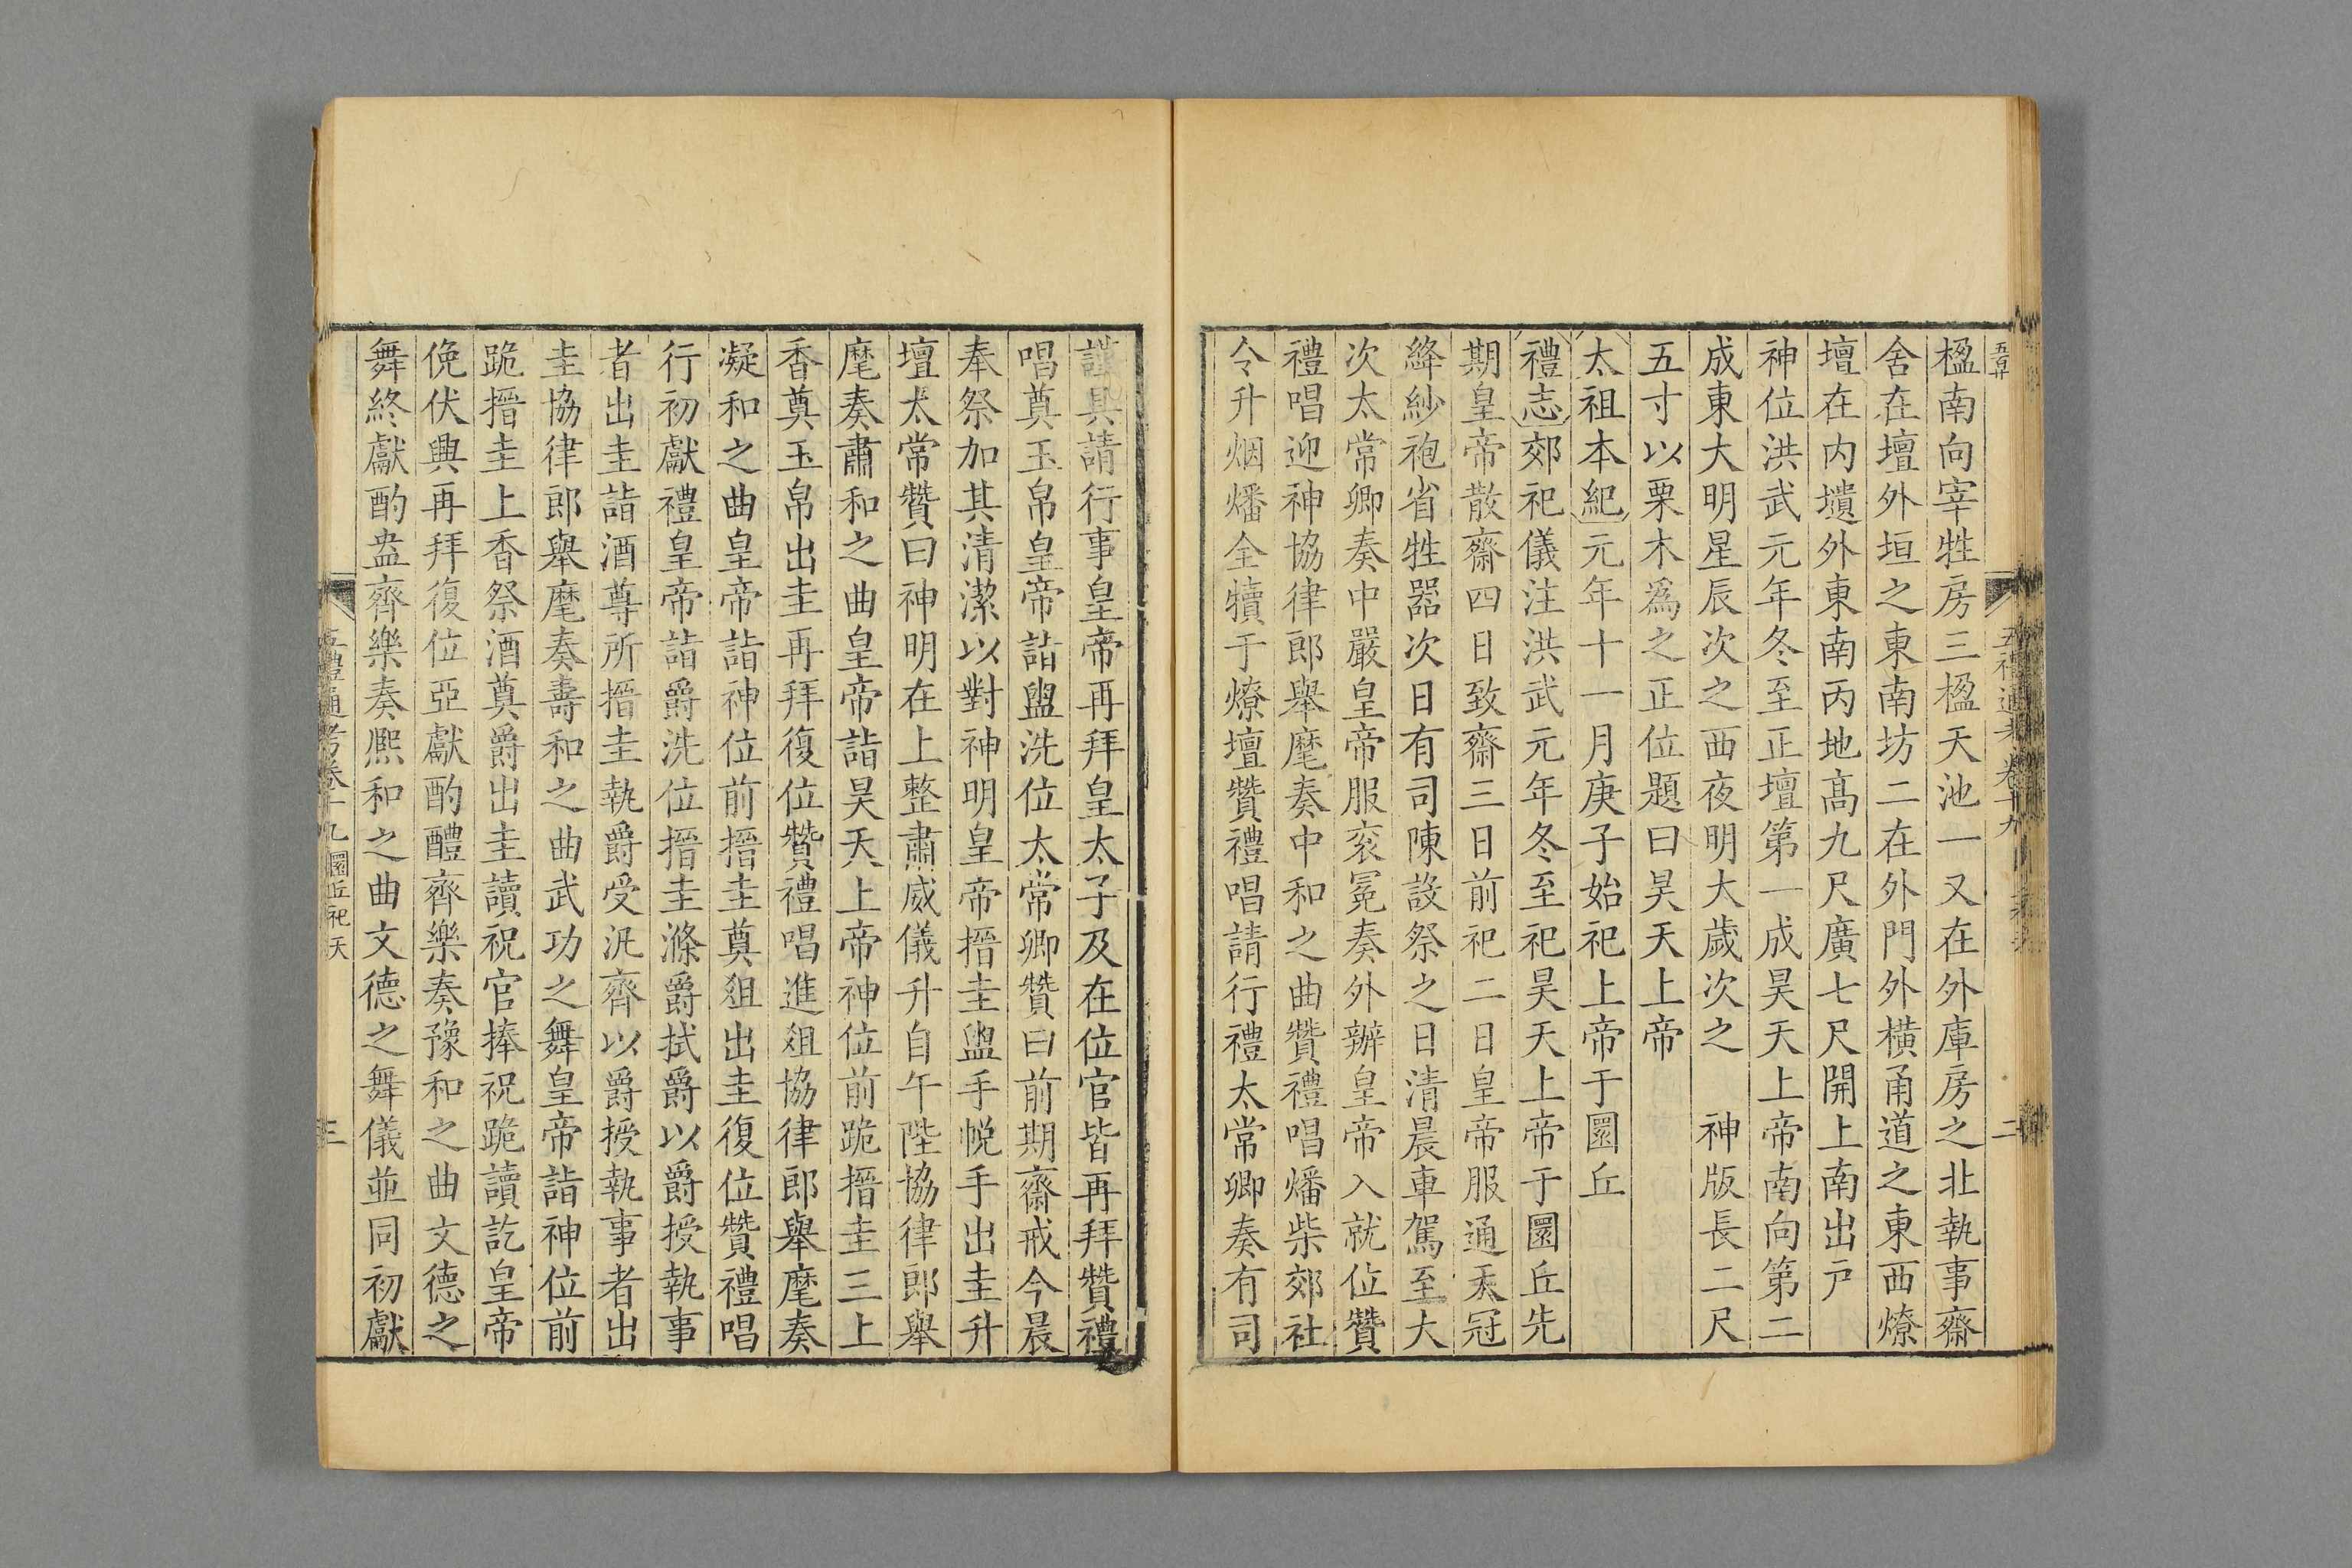 楹南向宰牲房三楹天池一又在外庫房之北執事齋
舍在壇外垣之東南坊二在外門外橫甬道之東西燎
壇在內壝外東南丙地高九尺廣七尺開上南出戸
神位洪武元年冬至正壇第一成昊天上帝南向第二
成東大明星辰次之西夜明大歲次之　神版長二尺
五寸以栗木爲之正位題曰昊天上帝
太祖本紀元年十一月庚子始祀上帝于圜丘
禮志郊祀儀注洪武元年冬至祀昊天上帝于圜丘先
期皇帝散齋四日致齋三日前祀二日皇帝服通天冠
絳紗袍省牲器次日有司陳設祭之日清晨車駕至大
次太常卿奏中嚴皇帝服衮冕奏外辦皇帝入就位贊
禮唱迎神協律郎舉麾奏中和之曲贊禮唱燔柴郊社
令升烟燔全犢于燎壇贊禮唱請行禮太常卿奏有司
謹具請行事皇帝再拜皇太子及在位官皆再拜贊禮
唱奠玉帛皇帝詣盥洗位太常卿贊曰前期齋戒今晨
奉祭加其清潔以對神明皇帝搢圭盥手帨手出圭升
壇太常贊曰神明在上整肅威儀升自午陛協律郎舉
麾奏肅和之曲皇帝詣昊天上帝神位前跪搢圭三上
香奠玉帛出圭再拜復位贊禮唱進俎協律郎舉麾奏
凝和之曲皇帝詣神位前搢圭奠俎出圭復位贊禮唱
行初獻禮皇帝詣爵洗位搢圭滌爵拭爵以爵授執事
者出圭詣酒尊所搢圭執爵受汎齊以爵授執事者出
圭協律郎舉麾奏壽和之曲武功之舞皇帝詣神位前
跪搢圭上香祭酒奠爵出圭讀祝官捧祝跪讀訖皇帝
俛伏興再拜復位亞獻酌醴齊樂奏豫和之曲文德之
舞終獻酌盎齊樂奏熙和之曲文德之舞儀並同初獻
五禮通考卷十九　圜丘祀天　三